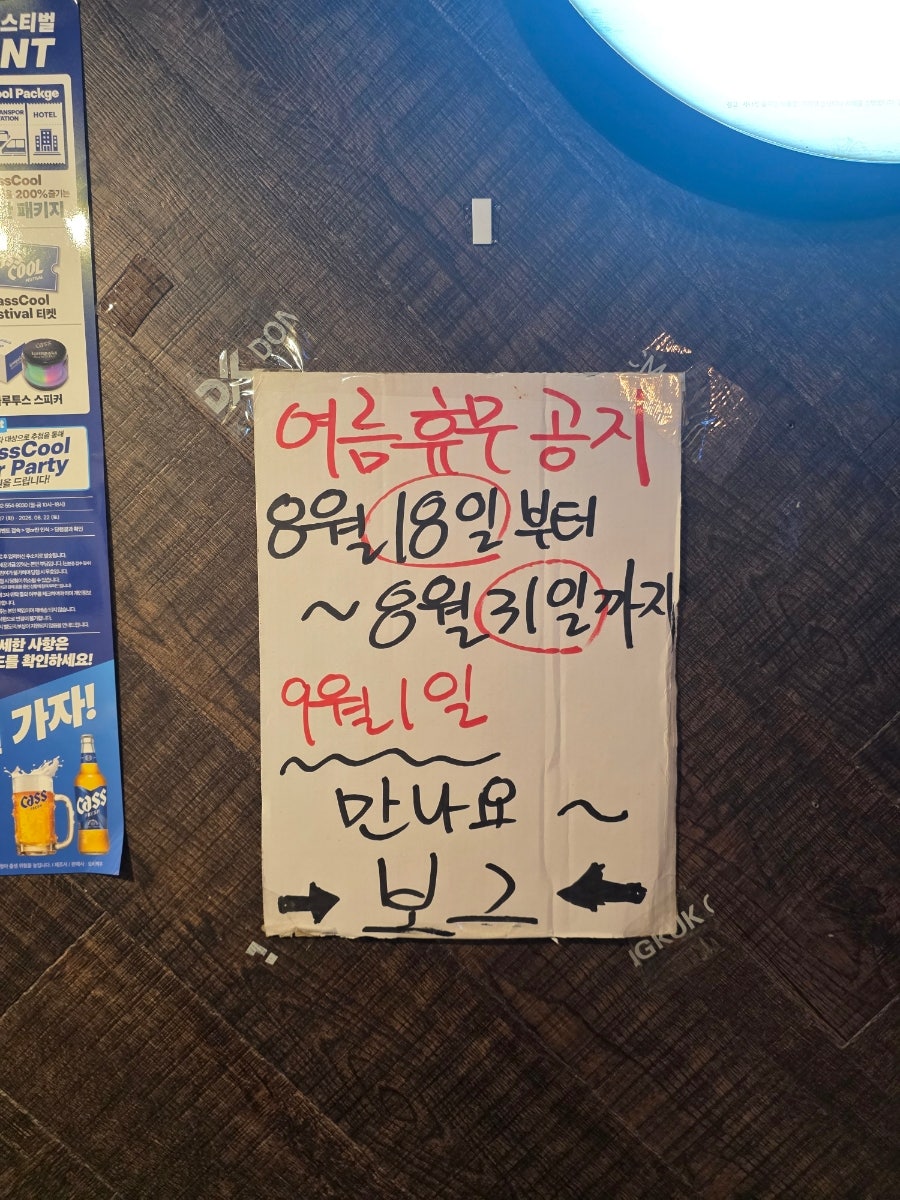 스티벌
NT
ool Packge
HOTEL
ssCool
200%즐기는
패키지
CASS
COOL
assCool
stival 티켓
루투스 스피커
대상으로 추첨을 통해
ssCool
r Party
을 드립니다!
세한 사항은
드를 확인하세요!
가자!
cass
cass
DON
여름휴무 공지
8월 18일 부터
~ 8월 31일까지
9월 1일
만나요 ~
보그
GKUK